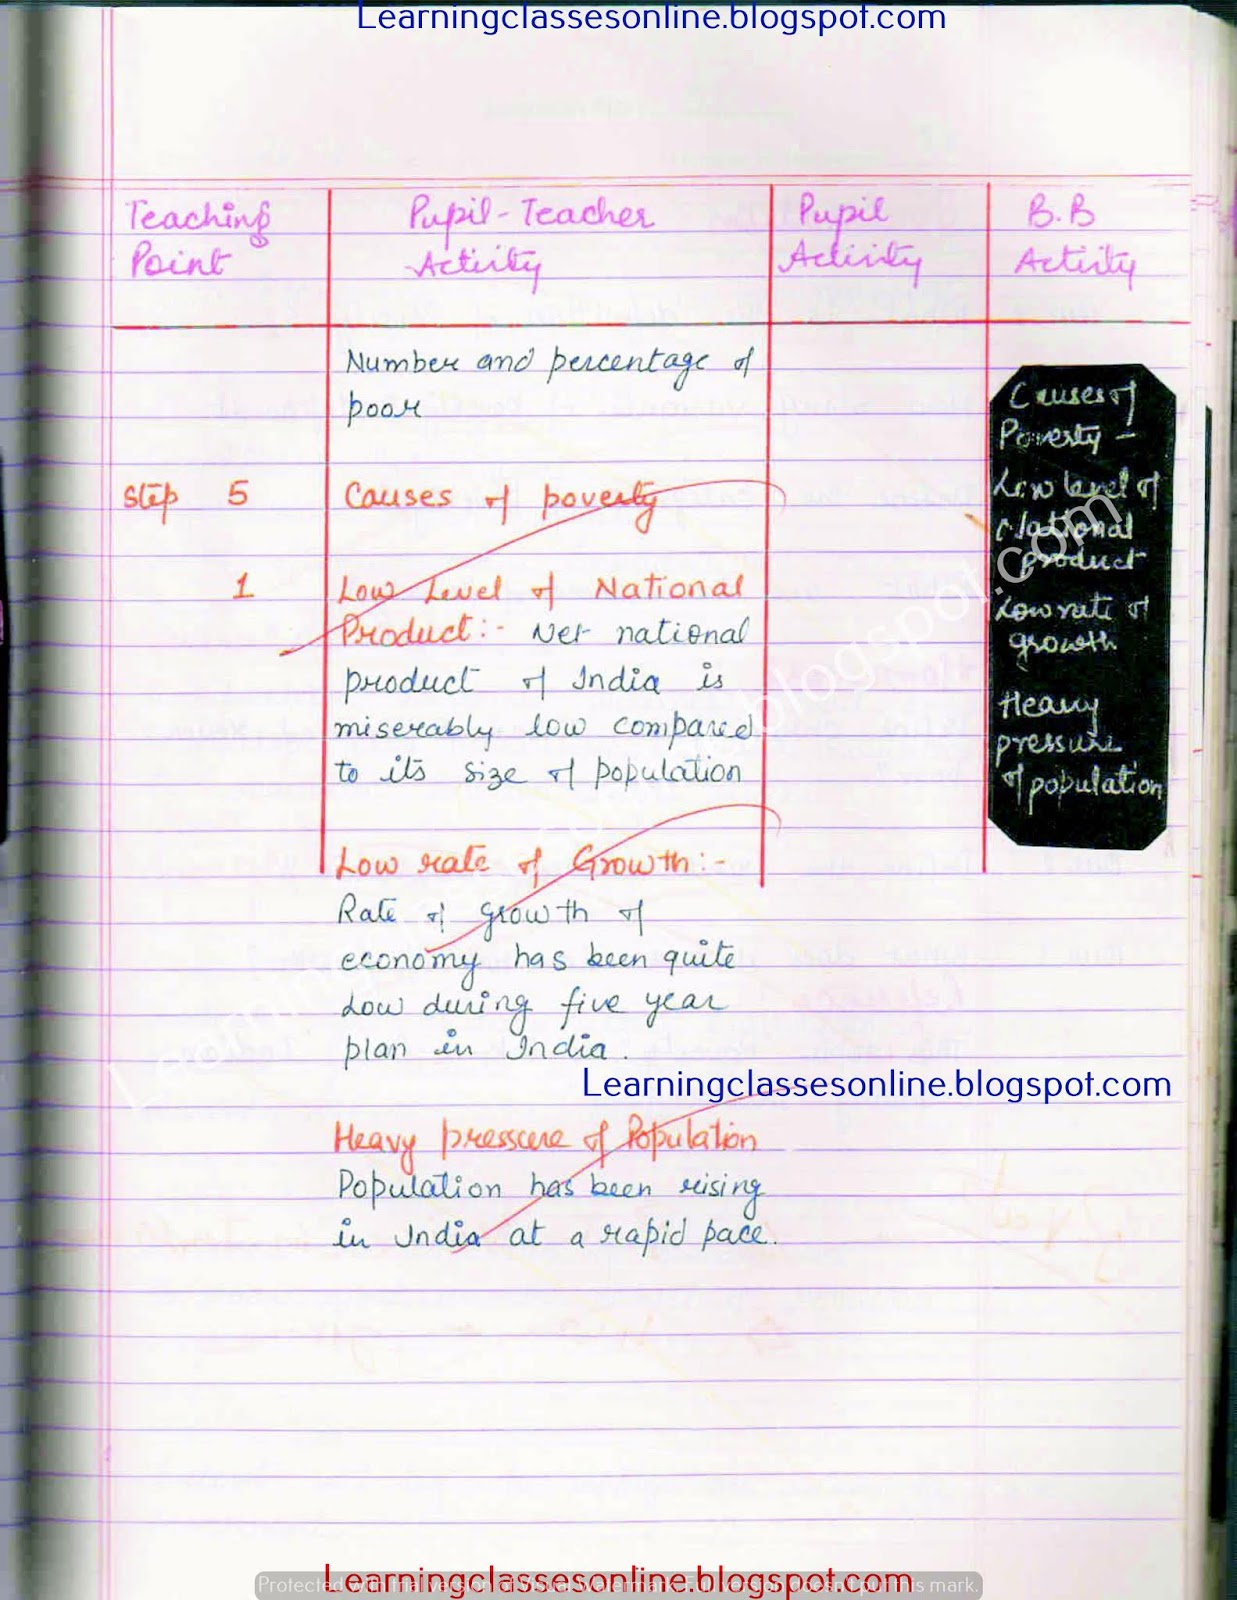 Learningclassesonline.blogspot.com
Teaching Point
Pupil-Teacher Activity
Pupil Activity
B.B Activity
Number and percentage of
poor
Step 5
Causes of poverty
1
Low Level of National
Product:- Net national
product of India is
miserably low compared
to its size of population
Low rate of Growth:-
Rate of growth of
economy has been quite
Low during five year
plan in India.
Heavy pressure of Population
Population has been rising
in India at a rapid pace.
Causes of
Poverty -
Low level of
National
product
Low rate of
growth
Heavy
pressure
of population
Learningclassesonline.blogspot.com
Learningclassesonline.blogspot.com
Protected with trial version of Visual Watermark. Full version doesn't put this mark.